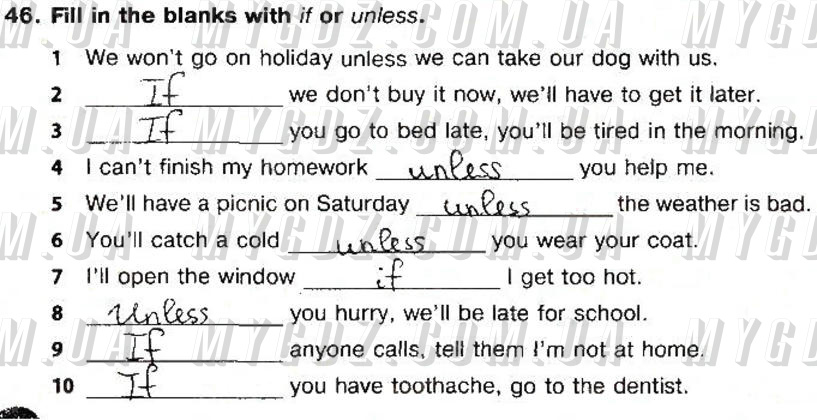 46. Fill in the blanks with if or unless.
1 We won't go on holiday unless we can take our dog with us.
2 If we don't buy it now, we'll have to get it later.
3 If you go to bed late, you'll be tired in the morning.
4 I can't finish my homework unless you help me.
5 We'll have a picnic on Saturday unless the weather is bad.
6 You'll catch a cold unless you wear your coat.
7 I'll open the window if I get too hot.
8 Unless you hurry, we'll be late for school.
9 If anyone calls, tell them I'm not at home.
10 If you have toothache, go to the dentist.